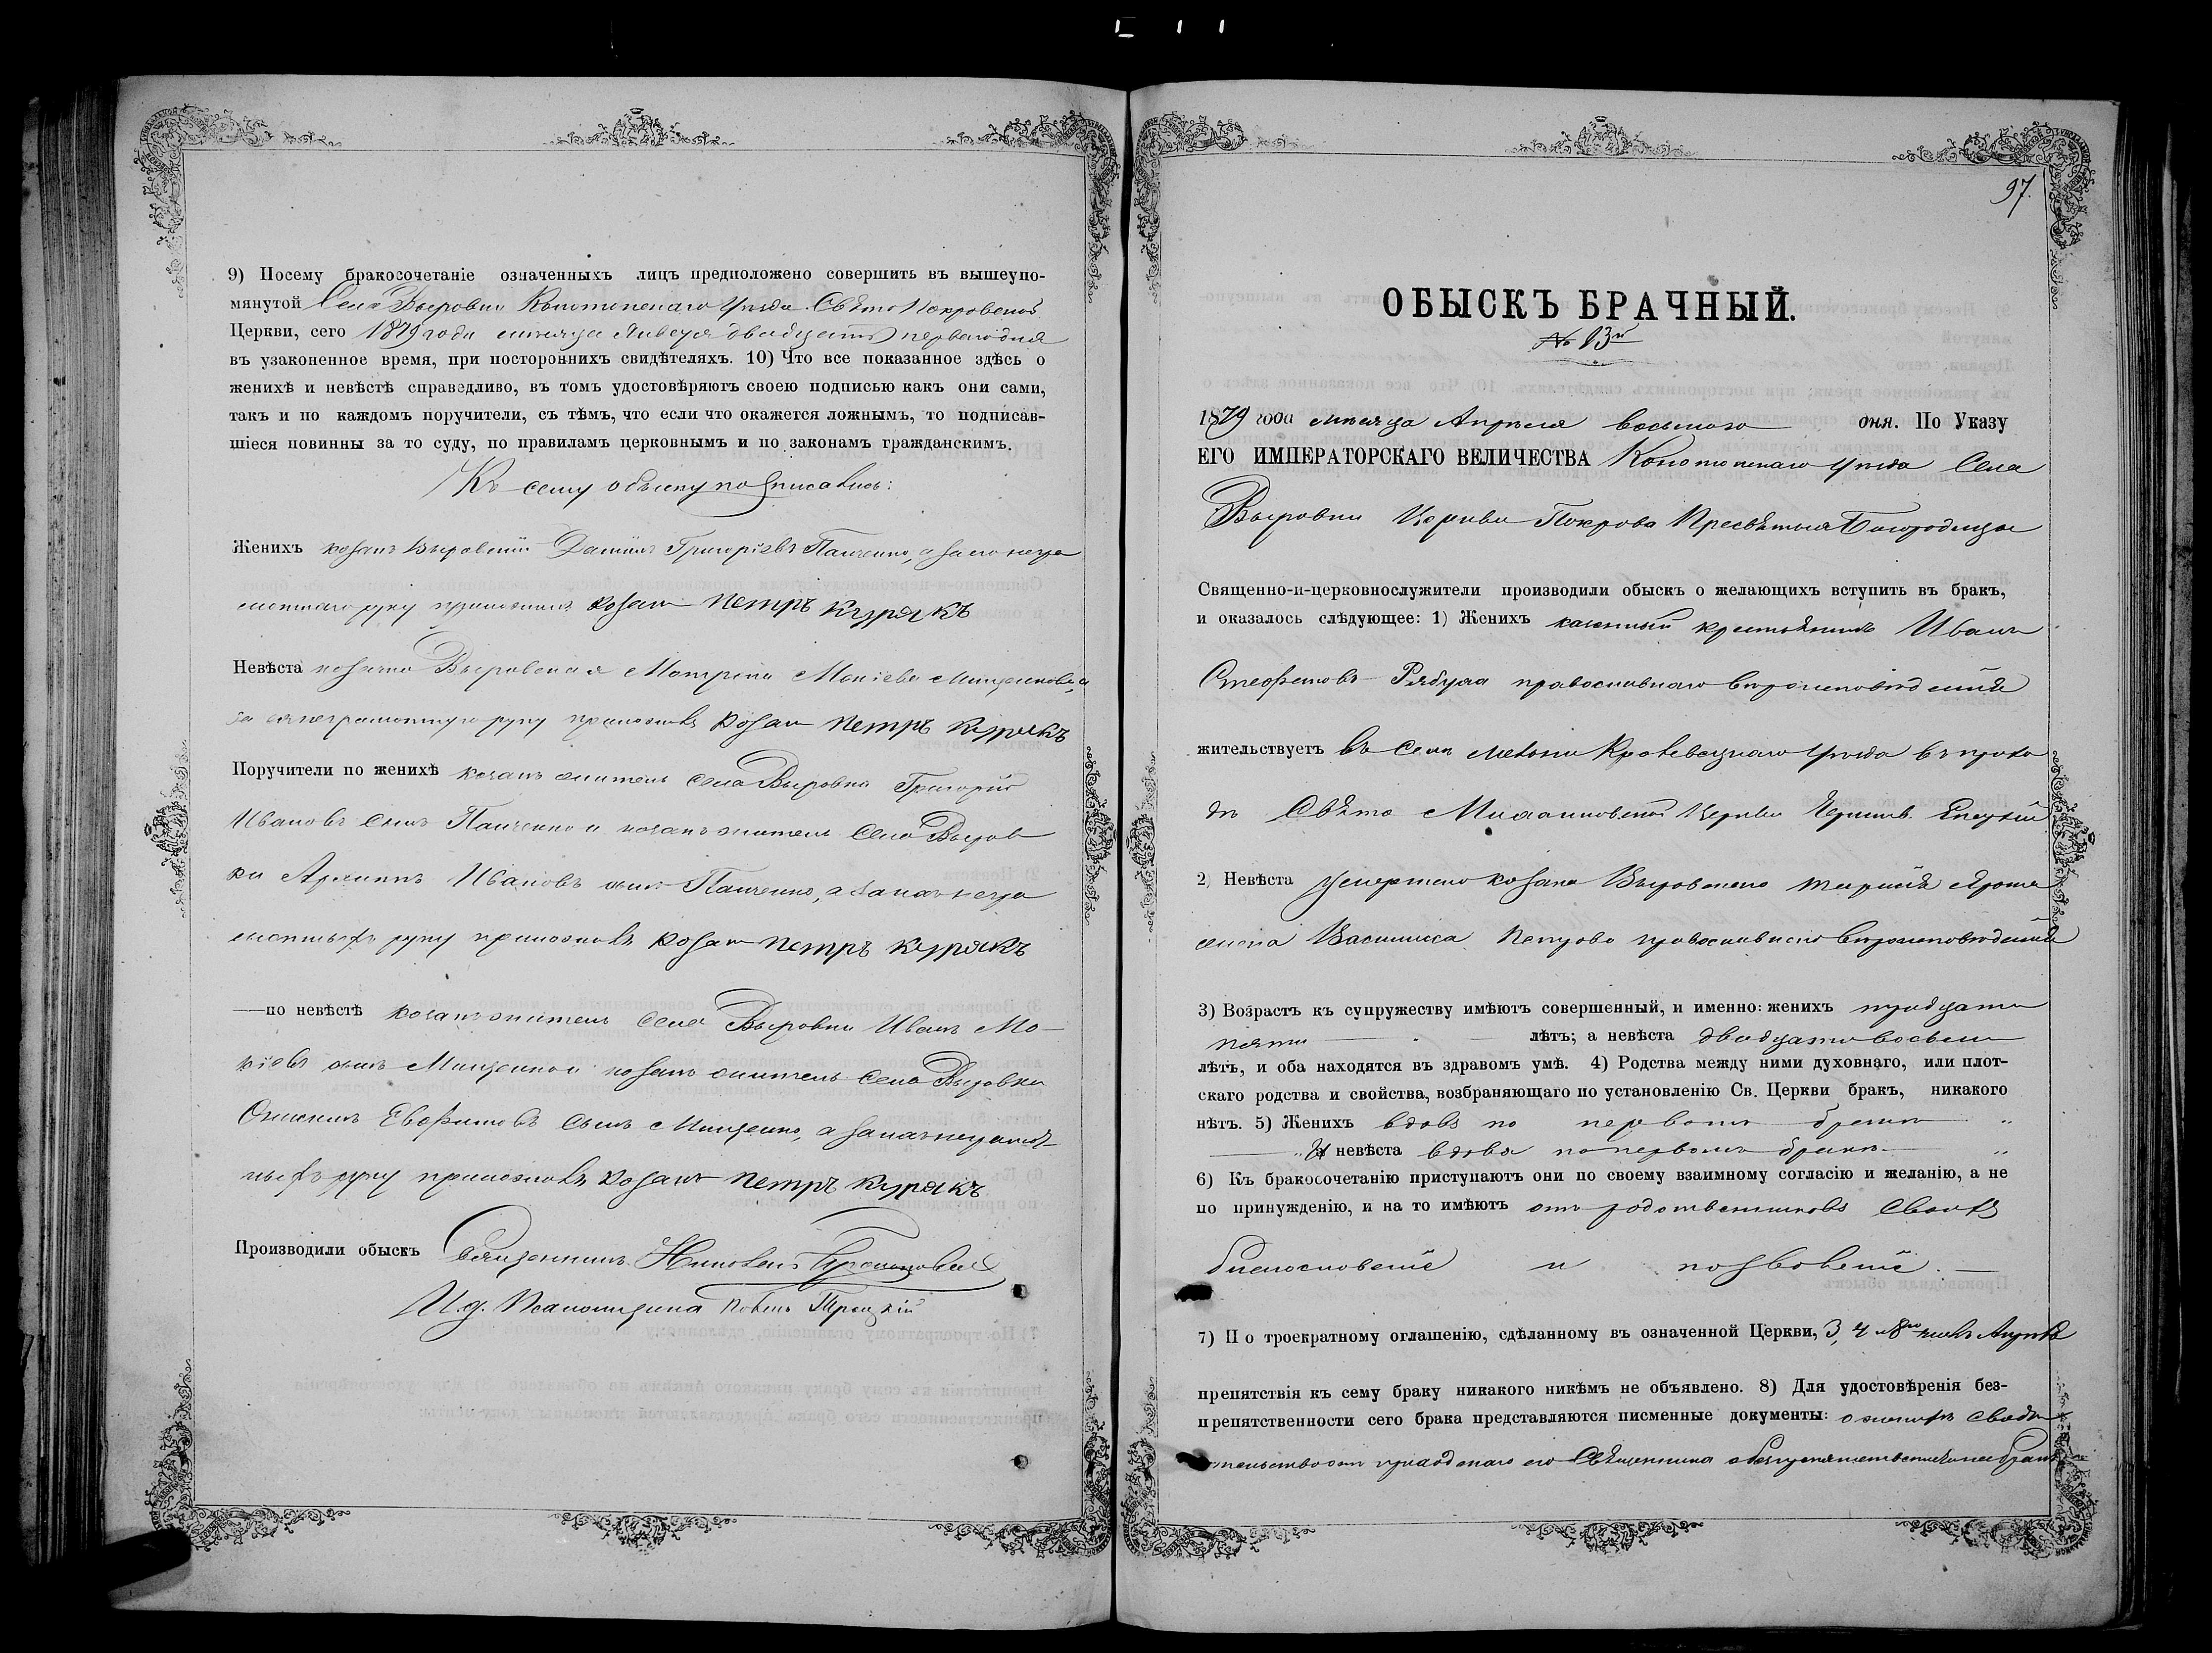 9) Посему бракосочетаніе означенныхъ лицъ предположено совершить въ вышеупо-
мянутой Села Выровки Конотопскаго Уѣзда Свято Покровской
Церкви, сего 1879 года мѣсяца Января двадцать перваго дня
въ узаконенное время, при постороннихъ свидѣтеляхъ. 10) Что все показанное здѣсь о
женихѣ и невѣстѣ справедливо, въ томъ удостовѣряютъ своею подписью какъ они сами,
такъ и по каждомъ поручители, съ тѣмъ, что если что окажется ложнымъ, то подписав-
шіеся повинны за то суду, по правиламъ церковнымъ и по законамъ гражданскимъ.
Къ сему обыску подписались:
Женихъ козакъ Выровскій Даніилъ Григоріевъ Панченко, а за его негра
мотнаго руку приложилъ козакъ Петръ Курякъ
Невѣста козачка Выровская Матрона Мокіева Мищенкова, а
за ея неграмотную руку приложилъ козакъ Петръ Курякъ
Поручители по женихѣ козакъ житель села Выровки Григорій
Ивановъ сынъ Панченко и козакъ житель села Выров
ки Ивановъ сынъ Панченко, а за ихъ негра
мотныхъ руку приложилъ козакъ Петръ Курякъ
—по невѣстѣ козакъ житель села Выровки Иванъ Мо-
кіевъ сынъ Мищенко и козакъ житель села Выровки
Онисимъ Евфимовъ сынъ Мищенко, а за ихъ неграмот
ныхъ руку приложилъ козакъ Петръ Курякъ
Производили обыскъ Священникъ Николай
И.д. Псаломщика Троцкій
97.
ОБЫСКЪ БРАЧНЫЙ.
№ 13й
1879 года мѣсяца Апрѣля восьмаго дня. По Указу
ЕГО ИМПЕРАТОРСКАГО ВЕЛИЧЕСТВА Конотопскаго Уѣзда Села
Выровки Церкви Покрова Пресвятыя Богородицы
Священно-и-церковнослужители производили обыскъ о желающихъ вступить въ бракъ,
и оказалось слѣдующее: 1) Женихъ казенный крестьянинъ Иванъ
Стефановъ Рябуха православнаго вѣроисповѣданія
жительствуетъ въ селѣ Кролевецкаго Уѣзда въ прихо
дѣ Свято Михайловской Церкви Чернигов. Епархіи
2) Невѣста умершаго козака Выровскаго
жена Василиса Петрова православнаго вѣроисповѣданія
3) Возрастъ къ супружеству имѣютъ совершенный, и именно: женихъ тридцати
пяти лѣтъ; а невѣста двадцати восьми
лѣтъ, и оба находятся въ здравомъ умѣ. 4) Родства между ними духовнаго, или плот-
скаго родства и свойства, возбраняющаго по установленію Св. Церкви бракъ, никакого
нѣтъ. 5) Женихъ вдовъ по первомъ бракѣ
И невѣста вдова по первомъ бракѣ
6) Къ бракосочетанію приступаютъ они по своему взаимному согласію и желанію, а не
по принужденію, и на то имѣютъ отъ родственниковъ своихъ
благословеніе и позволеніе.
7) По троекратному оглашенію, сдѣланному въ означенной Церкви, 3, 4 и 8го числъ Апрѣля
препятствія къ сему браку никакого никѣмъ не объявлено. 8) Для удостовѣренія без-
препятственности сего брака представляются писменные документы: о женихѣ свидѣ
тельство отъ приходскаго его Священника о безпрепятственномъ бракѣ